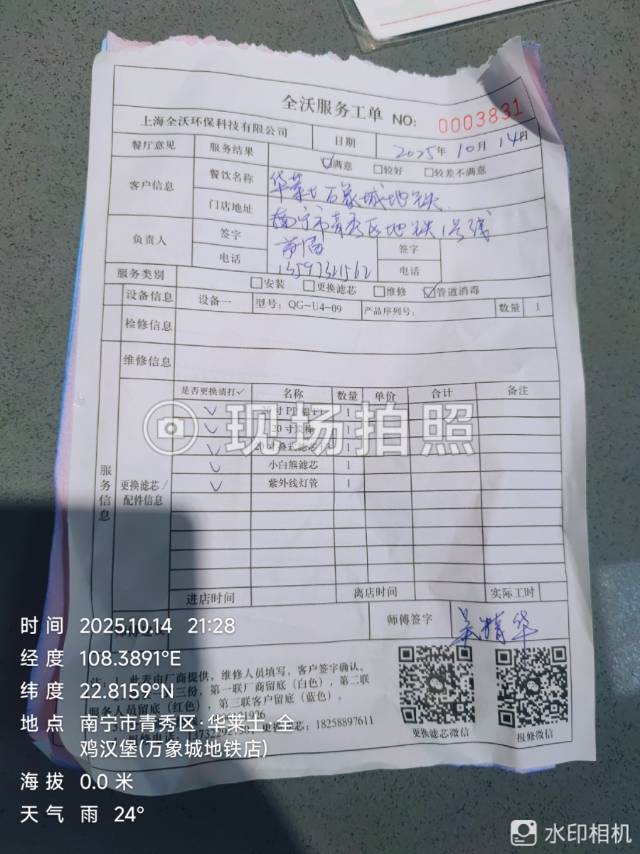 全沃服务工单 NO: 0003831
上海全沃环保科技有限公司 日期 2025年10月14日
餐厅意见 服务结果 ☑满意 □较好 □较差不满意
客户信息 餐饮名称 华莱士万象城地铁
门店地址 南宁市青秀区地铁1号线
负责人 签字 签字
电话 电话
服务类别 □安装 □更换滤芯 □维修 ☑管道消毒
设备信息 设备一 型号: QG-U4-09 产品序列号: 数量 1
检修信息
维修信息
服务信息
更换滤芯/配件信息
是否更换请打✓ 名称 数量 单价 合计 备注
✓ 1
✓ 20寸 1
✓ 1
✓ 小白熊滤芯 1
✓ 紫外线灯管 1
现场拍照
进店时间 离店时间 实际工时
师傅签字 吴精华
此表由厂商提供,维修人员填写,客户签字确认。
三份,第一联厂商留底(白色),第二联
服务人员留底(红色),第三联客户留底(蓝色)。
18258897611
更换滤芯微信 报修微信
时间 2025.10.14 21:28
经度 108.3891°E
纬度 22.8159°N
地点 南宁市青秀区·华莱士·全
鸡汉堡(万象城地铁店)
海拔 0.0 米
天气 雨 24°
水印相机